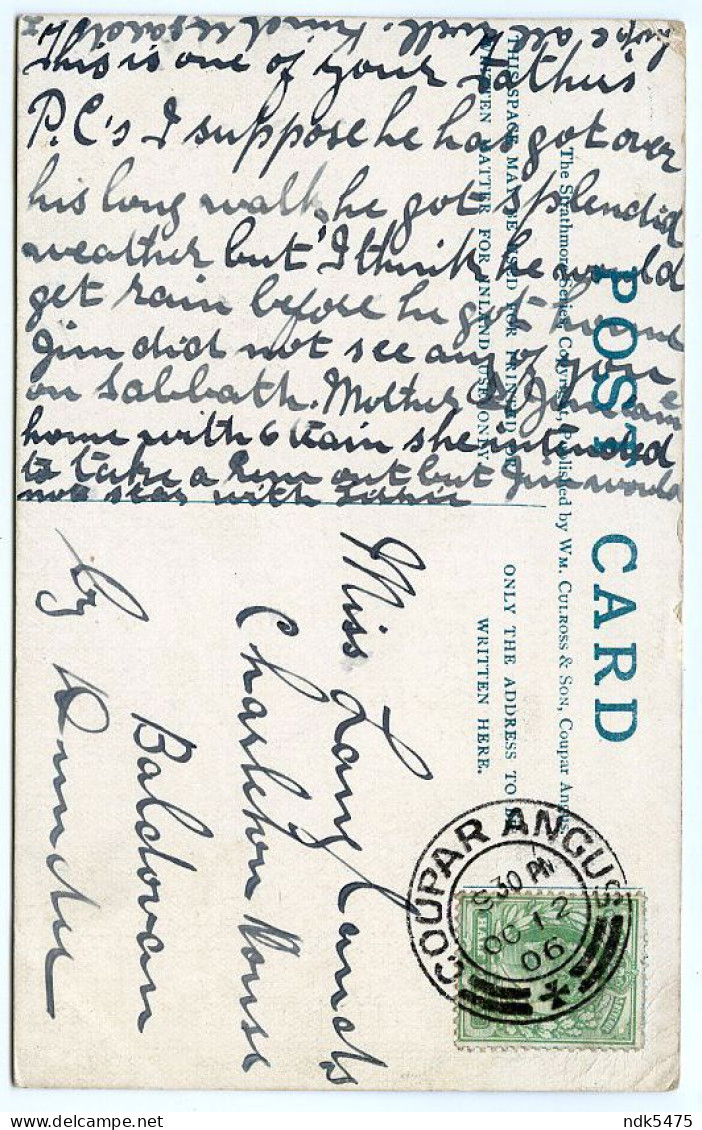 hope all well. Kind regards
This is one of your father's
P.C's I suppose he has got over
his long walk, he got splendid
weather but I think he would
get rain before he got home
Jim did not see any of you
on Sabbath. Mother & Jim came
home with 6 train she intended
to take a run out but Jim would
not
POST CARD
The Strathmore Series, Copyright, Published by Wm. Culross & Son, Coupar Angus
THIS SPACE MAY BE USED FOR PRINTED OR
WRITTEN MATTER FOR INLAND USE ONLY.
ONLY THE ADDRESS TO BE
WRITTEN HERE.
Miss Lang
Charleton House
Baldovan
by Dundee
COUPAR ANGUS
30 PM
OC 12
06
ndk5475